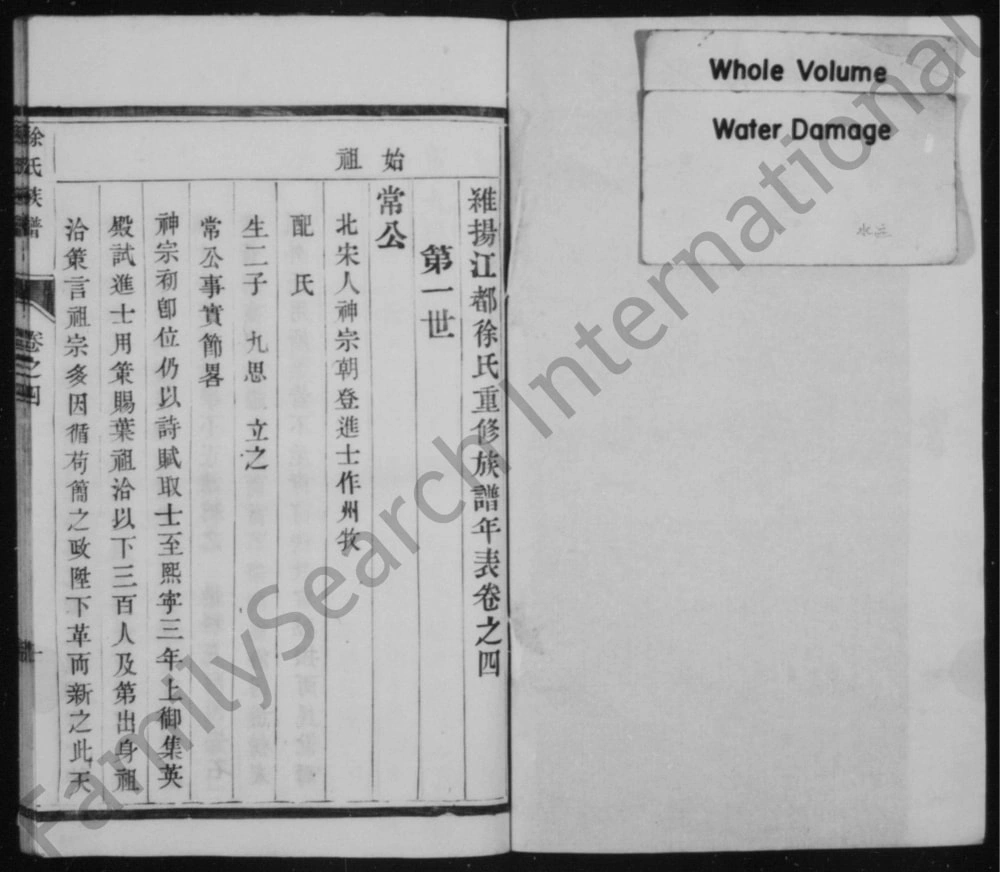 Whole Volume
Water Damage
維揚江都徐氏重修族譜年表卷之四
第一世
始祖
常公
北宋人神宗朝登進士作州牧
配 氏
生二子 九思 立之
常公事實節畧
神宗初卽位仍以詩賦取士至熙寕三年上御集英
殿試進士用策賜葉祖洽以下三百人及第出身祖
洽策言祖宗多因循苟簡之政陞下革而新之此天
徐氏族譜
卷之四
一
FamilySearch International